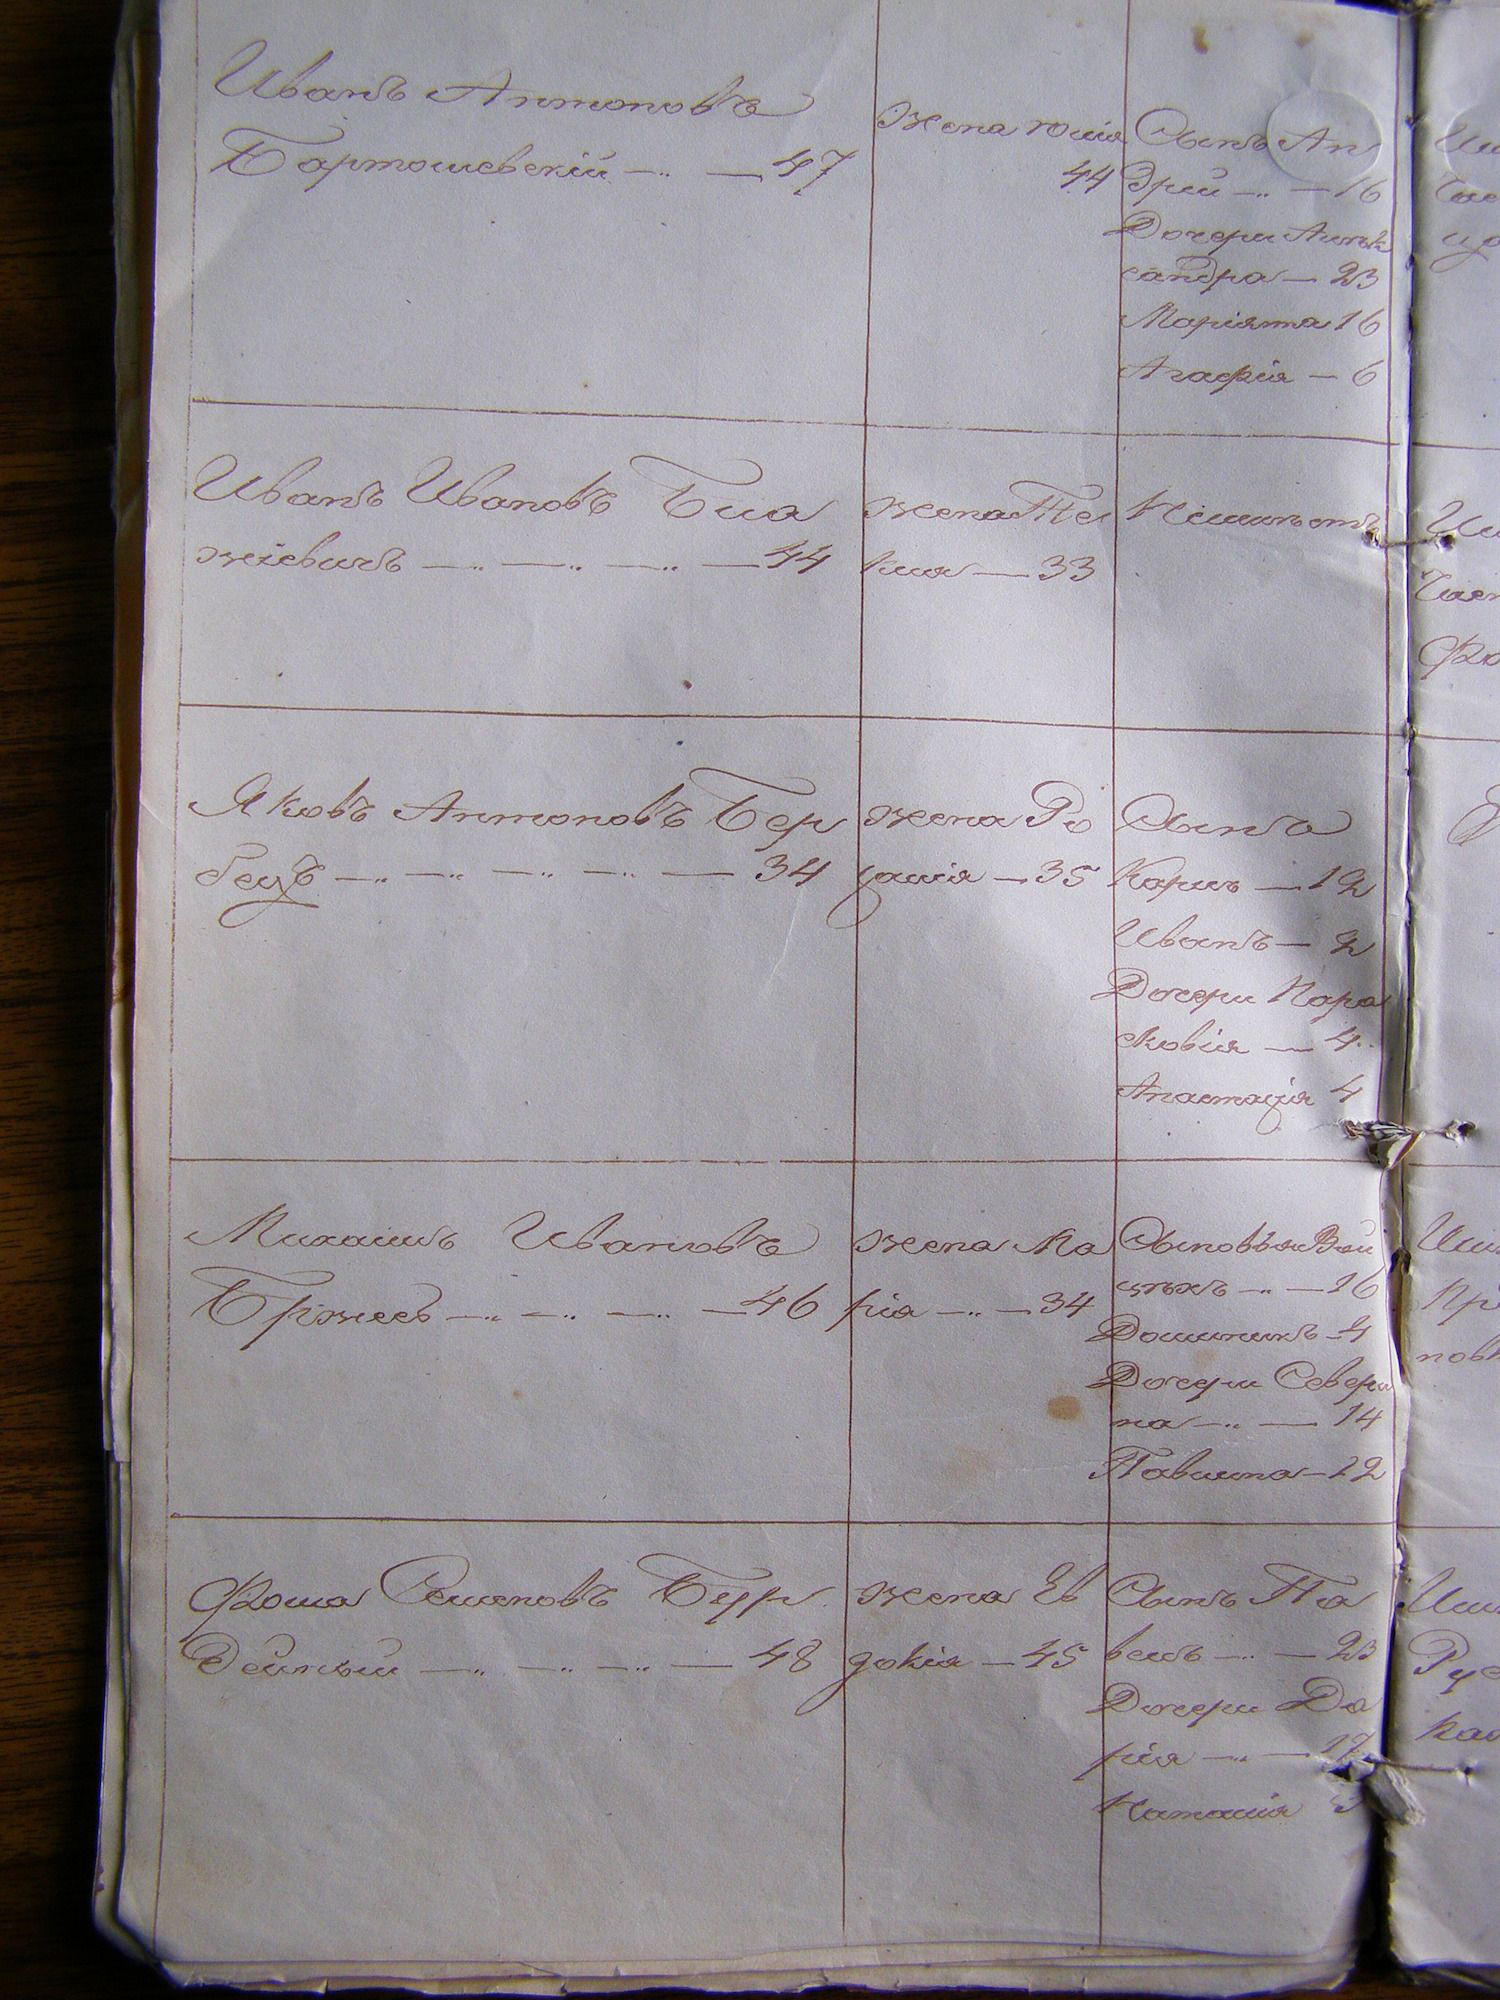 Иванъ Антоновъ
Бартошевскій — — 47
жена Юлія
44
Сынъ Ан
дрій — — 16
Дочери Алек
сандра — 23
Маріяна 16
Агафія — 6
Иванъ Ивановъ Бла
жіевичъ — — — — 44
жена Те
кля — 33
Яковъ Антоновъ Бер
беуъ — — — — — 34
жена Ро
залія — 35
Сынъ
Карпъ — 12
Иванъ — 2
Дочери Пара
сковія — 4
Анастація 4
Михаилъ Ивановъ
Бржесь — — — — 46
жена Ма
рія — — 34
Сыновья Вой
цѣхъ — — 16
Доминикъ — 4
Дочери Севери
на — — 14
Павлина — 12
Фома Семеновъ Бур
дейный — — — — 48
жена Ев
докія — 45
Сынъ Па
велъ — — 23
Дочери Да
рія — — 17
Наталія